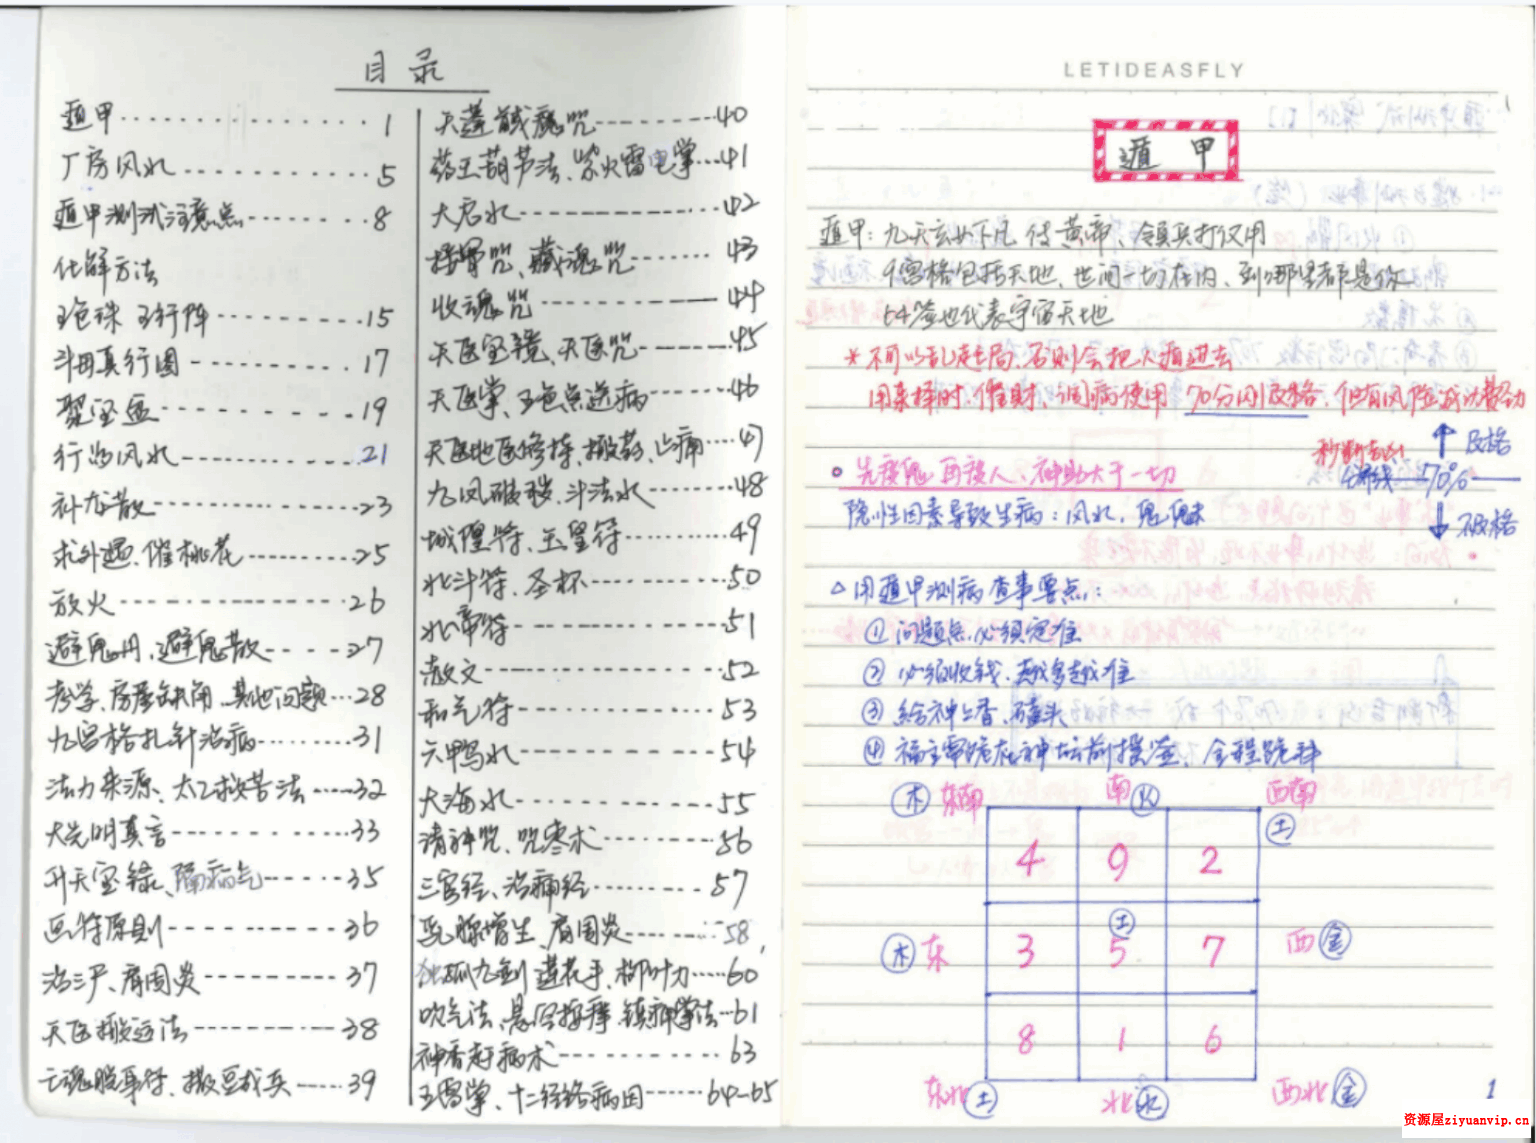 目录
遁甲 1
厂房风水 5
遁甲测试注意点 8
化解方法
五色珠 五行阵 15
斗母真行图 17
聚宝盆 19
行为风水 21
补龙散 23
求外遇、催桃花 25
放火 26
避鬼丹、避鬼散 27
考学、房屋缺角、其他问题 28
九宫格扎针治病 31
法力来源、太乙救苦法 32
大光明真言 33
升天宝箓、隔病气 35
画符原则 36
治三尸、肩周炎 37
天医搬运法 38
亡魂脱身符、撒豆成兵 39
天蓬咒 40
药王葫芦法、紫火雷电掌 41
大启水 42
接骨咒、藏魂咒 43
收魂咒 44
天医宝诰、天医咒 45
天医掌、五色点送病 46
天医地医修持、搬药、止痛 47
九凤破秽、斗法水 48
城隍符、玉皇符 49
北斗符、圣杯 50
北帝符 51
疏文 52
和气符 53
六甲鸣水 54
大海水 55
请神咒、咒枣术 56
三官经、治痛经 57
乳腺增生、肩周炎 58
独孤九剑 莲花手、柳叶刀 60
吹气法、悬空按摩、镇神掌法 61
神香赶病术 63
五雷掌、十二经络病因 64-65
LETIDEASFLY
遁 甲
遁甲：九天玄女下凡 传黄帝、领兵打仗用
9宫格包括天地、世间一切在内、到哪里都是你
64签也代表宇宙天地
*不可以乱起局、否则会把人遁进去
用来择时、催财、调病使用 70分以及格、但有风险 成功费劲
秒断吉凶
分界线 70%
及格
不及格
先渡鬼 再渡人、神助大于一切
隐性因素导致生病：风水，鬼魅
△用遁甲测病查事要点：
① 问题点必须定准
② 必须收钱、越多越准
③ 给神上香、磕头
④ 福主需跪在神坛前摸签、全程跪拜
木 东南 南 火 西南 土
4 9 2
木 东 3 土 5 7 西 金
8 1 6
东北 土 北 水 西北 金
1
资源屋ziyuanvip.cn